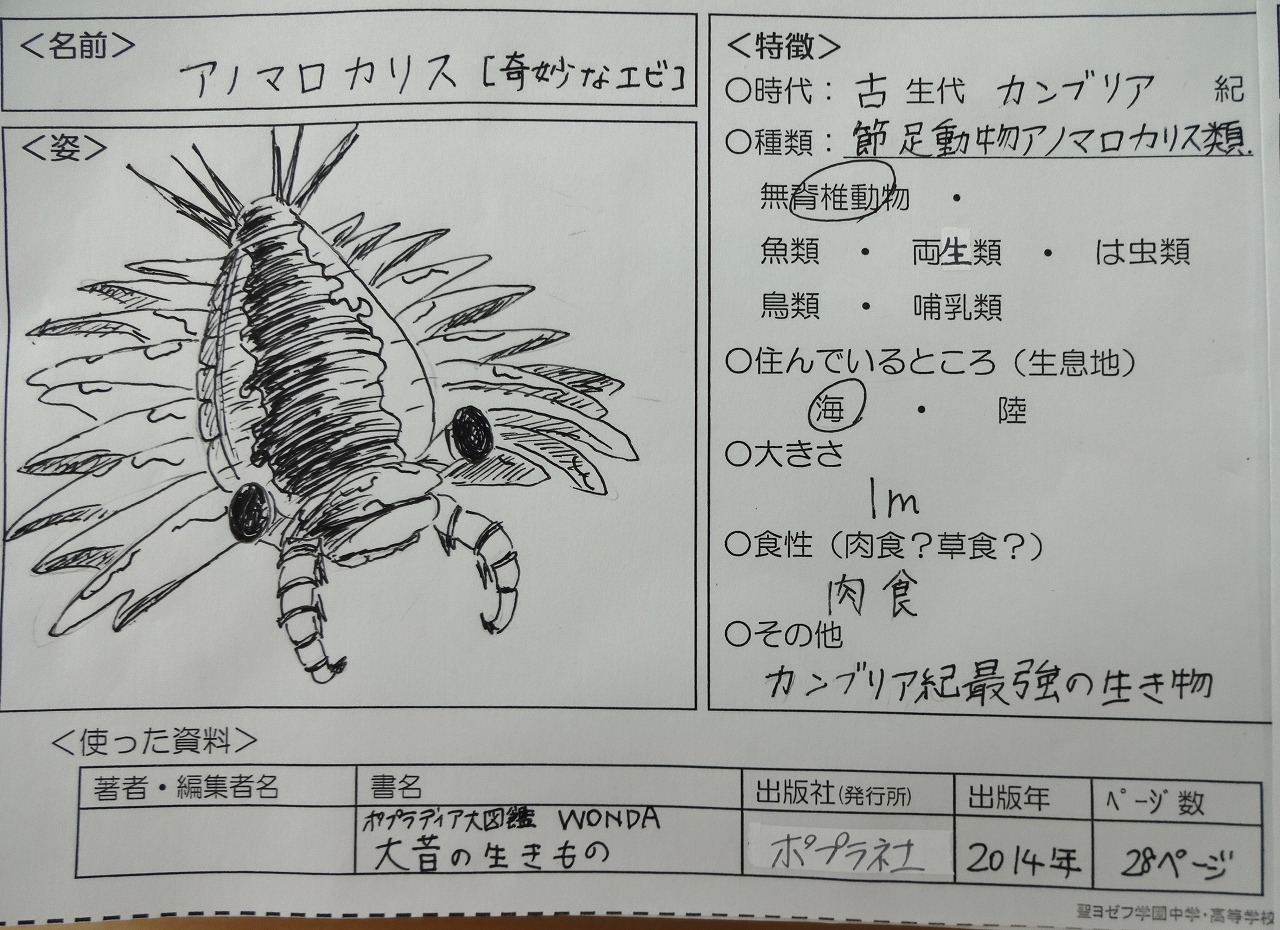 <名前>
アノマロカリス [奇妙なエビ]
<姿>
<特徴>
○時代：古生代 カンブリア 紀
○種類：節足動物アノマロカリス類.
無脊椎動物 ・
魚類 ・ 両生類 ・ は虫類
鳥類 ・ 哺乳類
○住んでいるところ（生息地）
海 ・ 陸
○大きさ
1m
○食性（肉食？草食？）
肉食
○その他
カンブリア紀最強の生き物
<使った資料>
著者・編集者名 書名 出版社(発行所) 出版年 ページ数
ポプラディア大図鑑 WONDA
大昔の生きもの ポプラ社 2014年 28ページ
聖ヨゼフ学園中学・高等学校